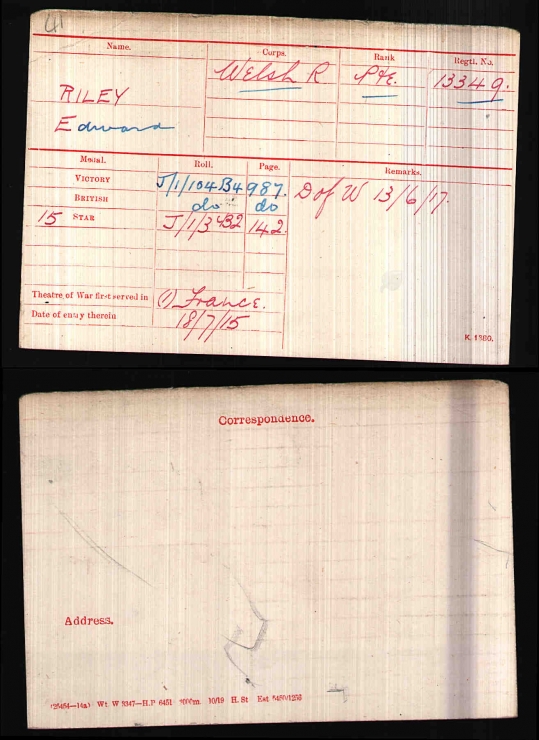 41
Name. Corps. Rank Regtl. No.
Welsh R Pte. 13349.
RILEY
Edward
Medal. Roll. Page. Remarks.
VICTORY J/1/104.B4 987. D of W 13/6/17.
BRITISH do do
15 STAR J/1/3 B2 142.
Theatre of War first served in (1) France.
Date of entry therein 18/7/15
K. 1380.
Correspondence.
Address.
Wt. W 9347—H.P 6451 10/19 H. St